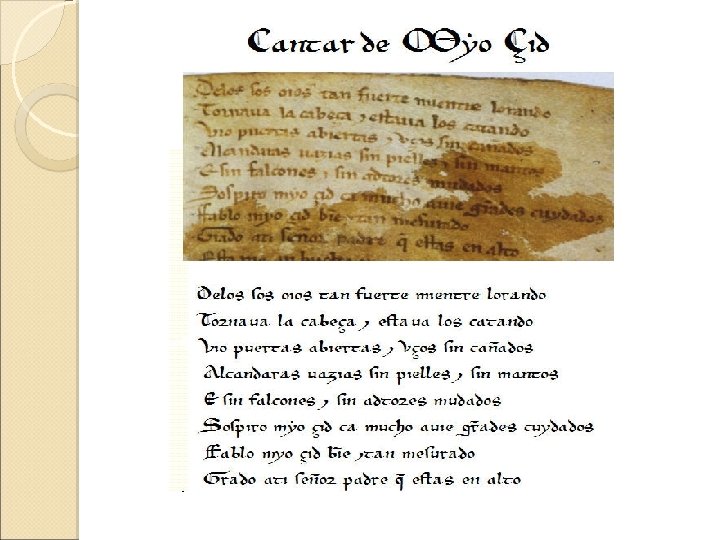 Cantar de Myo Çid
Delos sos oios tan fuerte mientre lorando
Tornaua la cabeça ⁊ estaua los catando
Vio puertas abiertas ⁊ vços sin cañados
Alcandaras uazias sin pielles ⁊ sin mantos
E sin falcones ⁊ sin adtores mudados
Sospiro myo çid ca mucho auie gr̃ades cuydados
Fablo myo çid biẽ ⁊ tan mesurado
Grado ati señor padre q̃ estas en alto
Delos sos oios tan fuerte mientre lorando
Tornaua la cabeça ⁊ estaua los catando
Vio puertas abiertas ⁊ vços sin cañados
Alcandaras uazias sin pielles ⁊ sin mantos
E sin falcones ⁊ sin adtores mudados
Sospiro mẏo çid ca mucho auie gr̃ades cuydados
Fablo myo çid biẽ ⁊ tan mesurado
Grado ati señor padre q̃ estas en alto